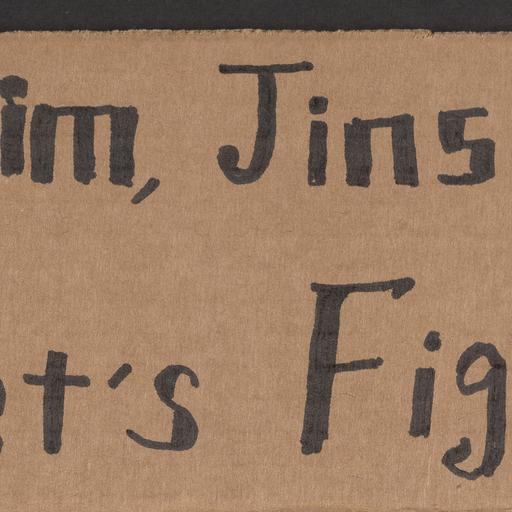 im, Jins
t's Fig